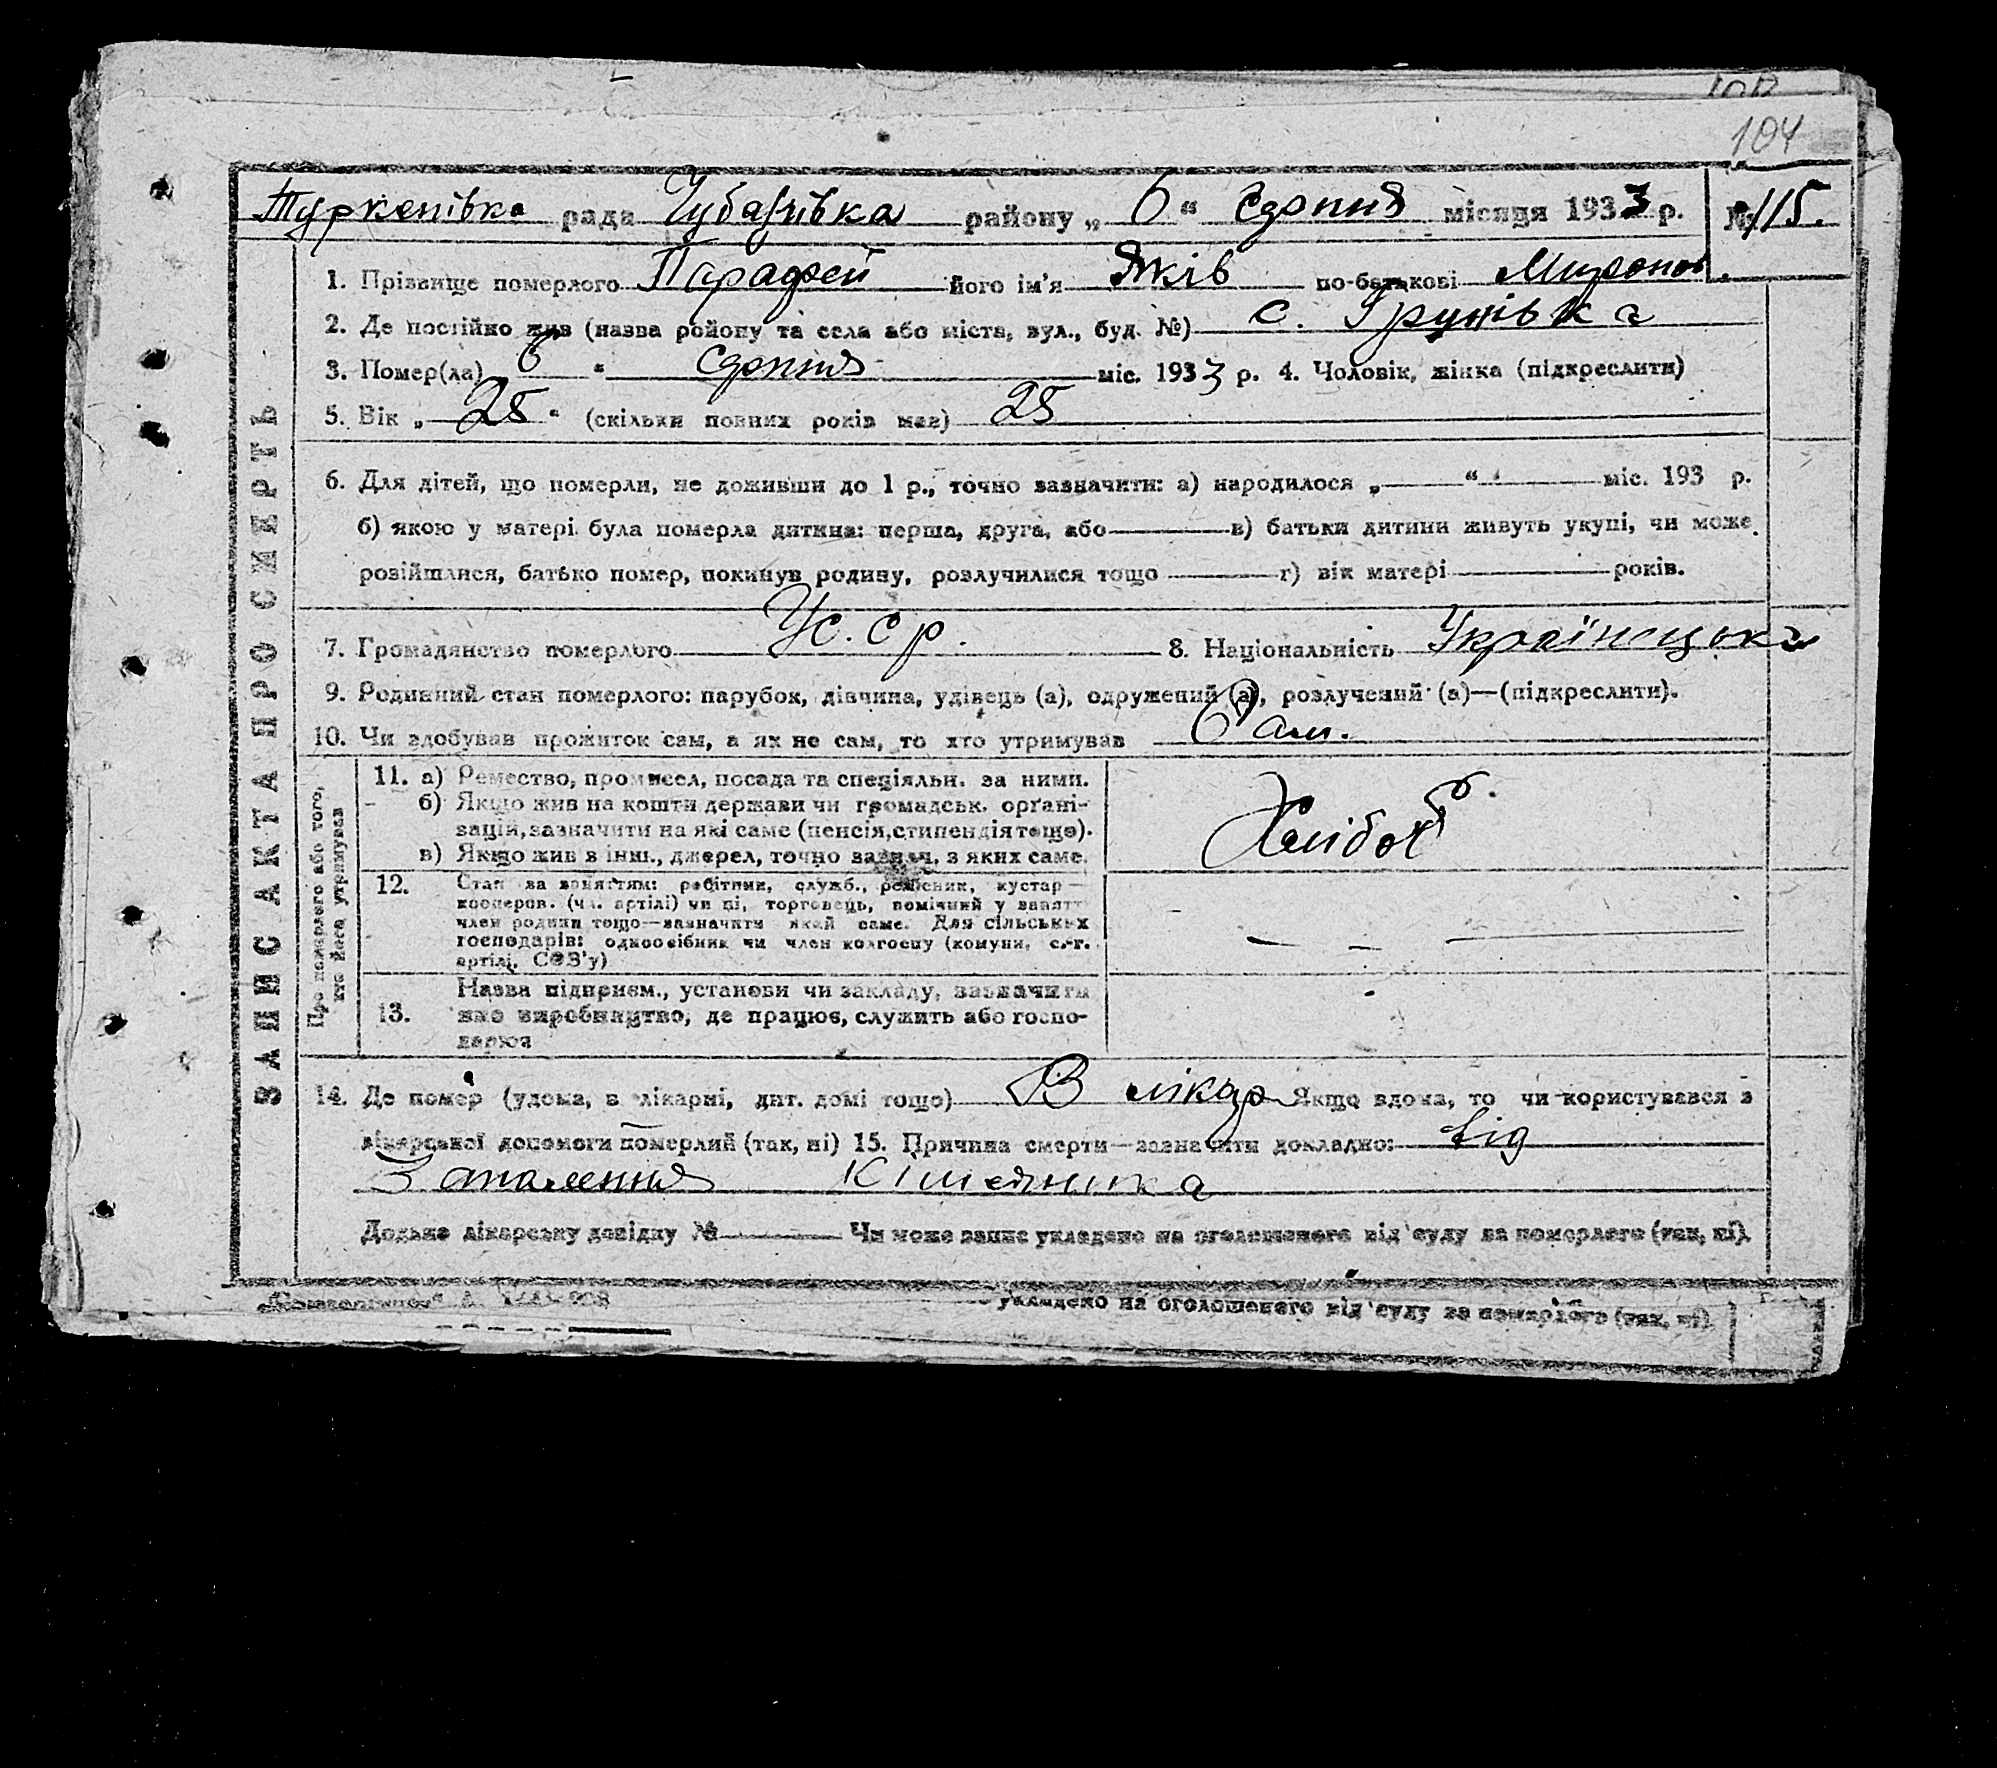 104
Туркенівка рада Чубарівка району „ 6 “ серпня місяця 1933 р. № 115.
ЗАПИС АКТА ПРО СМЕРТЬ
1. Прізвище померлого Парафей його ім'я Яків по-батькові Миронов.
2. Де постійно жив (назва району та села або міста, вул., буд. №) с. Грунівка
3. Помер(ла) 6 “ серпня міс. 1933 р. 4. Чоловік, жінка (підкреслити)
5. Вік „ 25 “ (скільки повних років мав) 25
6. Для дітей, що померли, не доживши до 1 р., точно зазначити: а) народилося „ “ міс. 193 р.
б) якою у матері була померла дитина: перша, друга, або в) батьки дитини живуть укупі, чи може
розійшлися, батько помер, покинув родину, розлучилися тощо г) вік матері років.
7. Громадянство померлого У.с.с р. 8. Національність Українська
9. Родинний стан померлого: парубок, дівчина, удівець (а), одружений (а), розлучений (а)—(підкреслити).
10. Чи здобував прожиток сам, а як не сам, то хто утримував Сам.
Про померлого або того, хто його утримував
11. а) Ремество, промисел, посада та спеціяльн. за ними.
б) Якщо жив на кошти держави чи громадськ. органі-
зацій, зазначити на які саме (пенсія, стипендія тощо).
в) Якщо жив в інш., джерел, точно зазнач. з яких саме.
Хлібоб.
12. Стан за заняттям: робітник, служб., ремісник, кустар—
кооперов. (чл. артілі) чи ні, торговець, помічний у занятт
член родини тощо—зазначити який саме. Для сільських
господарів: одноосібник чи член колгоспу (комуни, с.-г.
артілі, СОЗ'у)
13. Назва підприєм., установи чи закладу, зазначити
яке виробництво, де працює, служить або госпо-
дарює
14. Де помер (удома, в лікарні, дит. домі тощо) В лікар Якщо вдома, то чи користувався з
лікарської допомоги померлий (так, ні) 15. Причина смерти—зазначити докладно: від
Запалення кішечника
Додано лікарську довідку № Чи може запис укладено на оголошеного від суду за померлого (так, ні).
укладено на оголошеного від суду за померлого (так, ні)